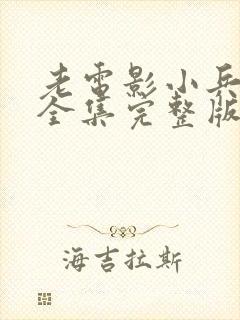 老电影小兵
全集完整版
海吉拉斯